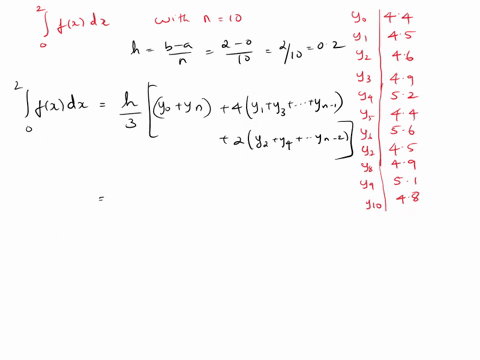 ∫₀² f(x) dx with n = 10
h = (b-a)/n = (2-0)/10 = 2/10 = 0.2
∫₀² f(x) dx = h/3 [(y₀ + yn) + 4(y₁ + y₃ + ··· + yn-1)
+ 2(y₂ + y₄ + ··· yn-2)]
=
y₀ | 4.4
y₁ | 4.5
y₂ | 4.6
y₃ | 4.9
y₄ | 5.2
y₅ | 4.4
y₆ | 5.6
y₂ | 4.5
y₈ | 4.9
y₉ | 5.1
y₁₀ | 4.8